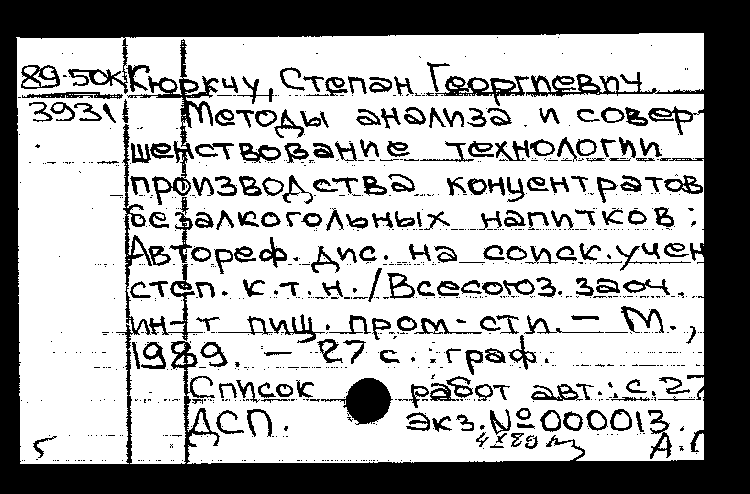 89-50к Кюркчу, Степан Георгиевич.
3931 Методы анализа и совер-
шенствование технологии
производства концентратов
безалкогольных напитков:
Автореф. дис. на соиск. учен
степ. к.т.н. / Всесоюз. заоч.
ин-т пищ. пром-сти. — М.,
1989. — 27 с. : граф.
Список работ авт.: с. 27
ДСП. экз. № 000013.
5 А.